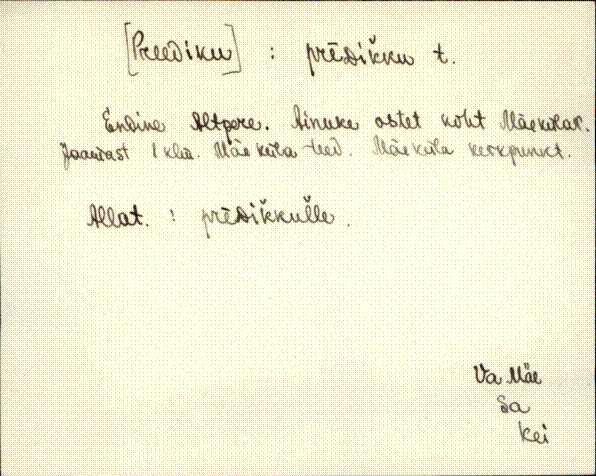 [Preediku] : prēDiǩku t.
Endine Altpere. Ainuke ostet koht Mäekülas.
Jaamast 1 klm. Mäeküla teed. Mäeküla keskpunkt.
Allat. : prēDiǩkulle.
Va Mäe
Sa
Kei